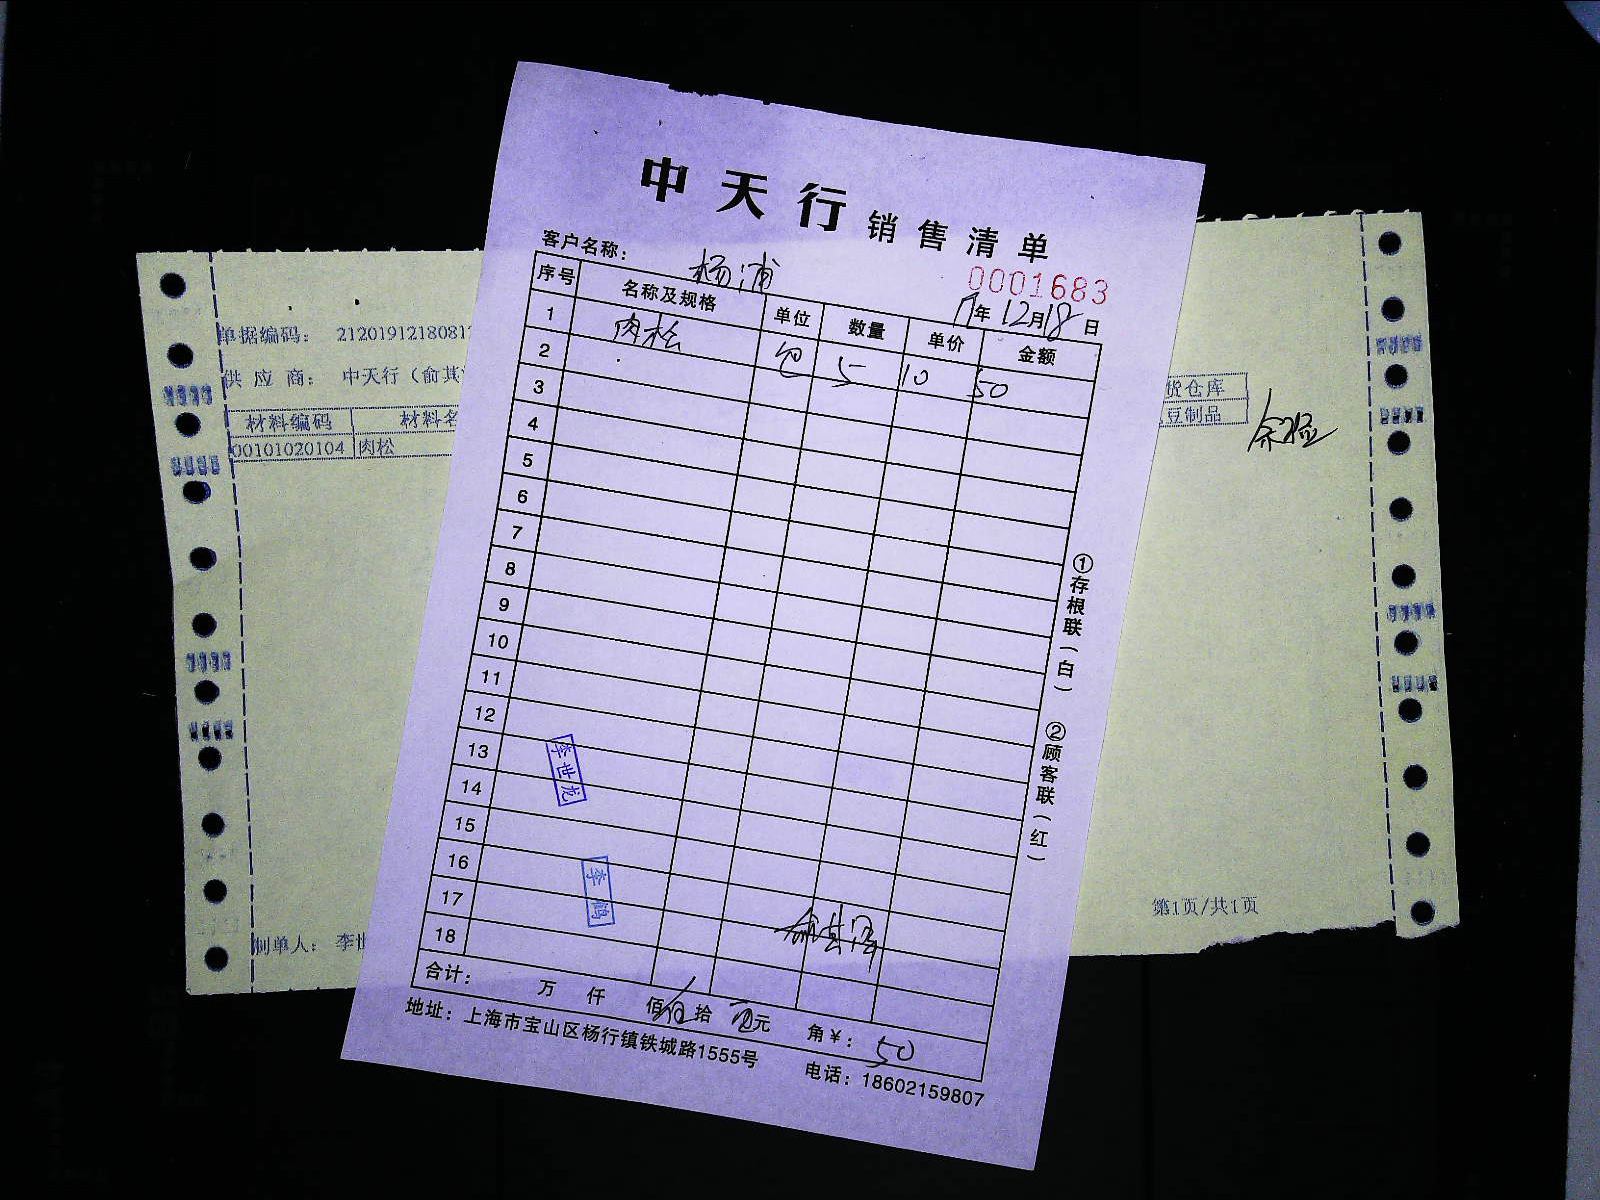 中天行 销售清单
客户名称： 杨浦
0001683
年 12月18日
序号 名称及规格 单位 数量 单价 金额
1 肉松 包 5 10 50
2
3
4
5
6
7
8
9
10
11
12
13
14
15
16
17
18
李世龙
李鹤
俞其
合计： 万 仟 佰 伍 拾 元 角 ¥： 50
地址：上海市宝山区杨行镇铁城路1555号 电话：18602159807
①存根联（白） ②顾客联（红）
单据编码： 2120191218081
供应商： 中天行（俞其
材料编码 材料名
00101020104 肉松
货仓库
豆制品
制单人： 李世
第1页/共1页